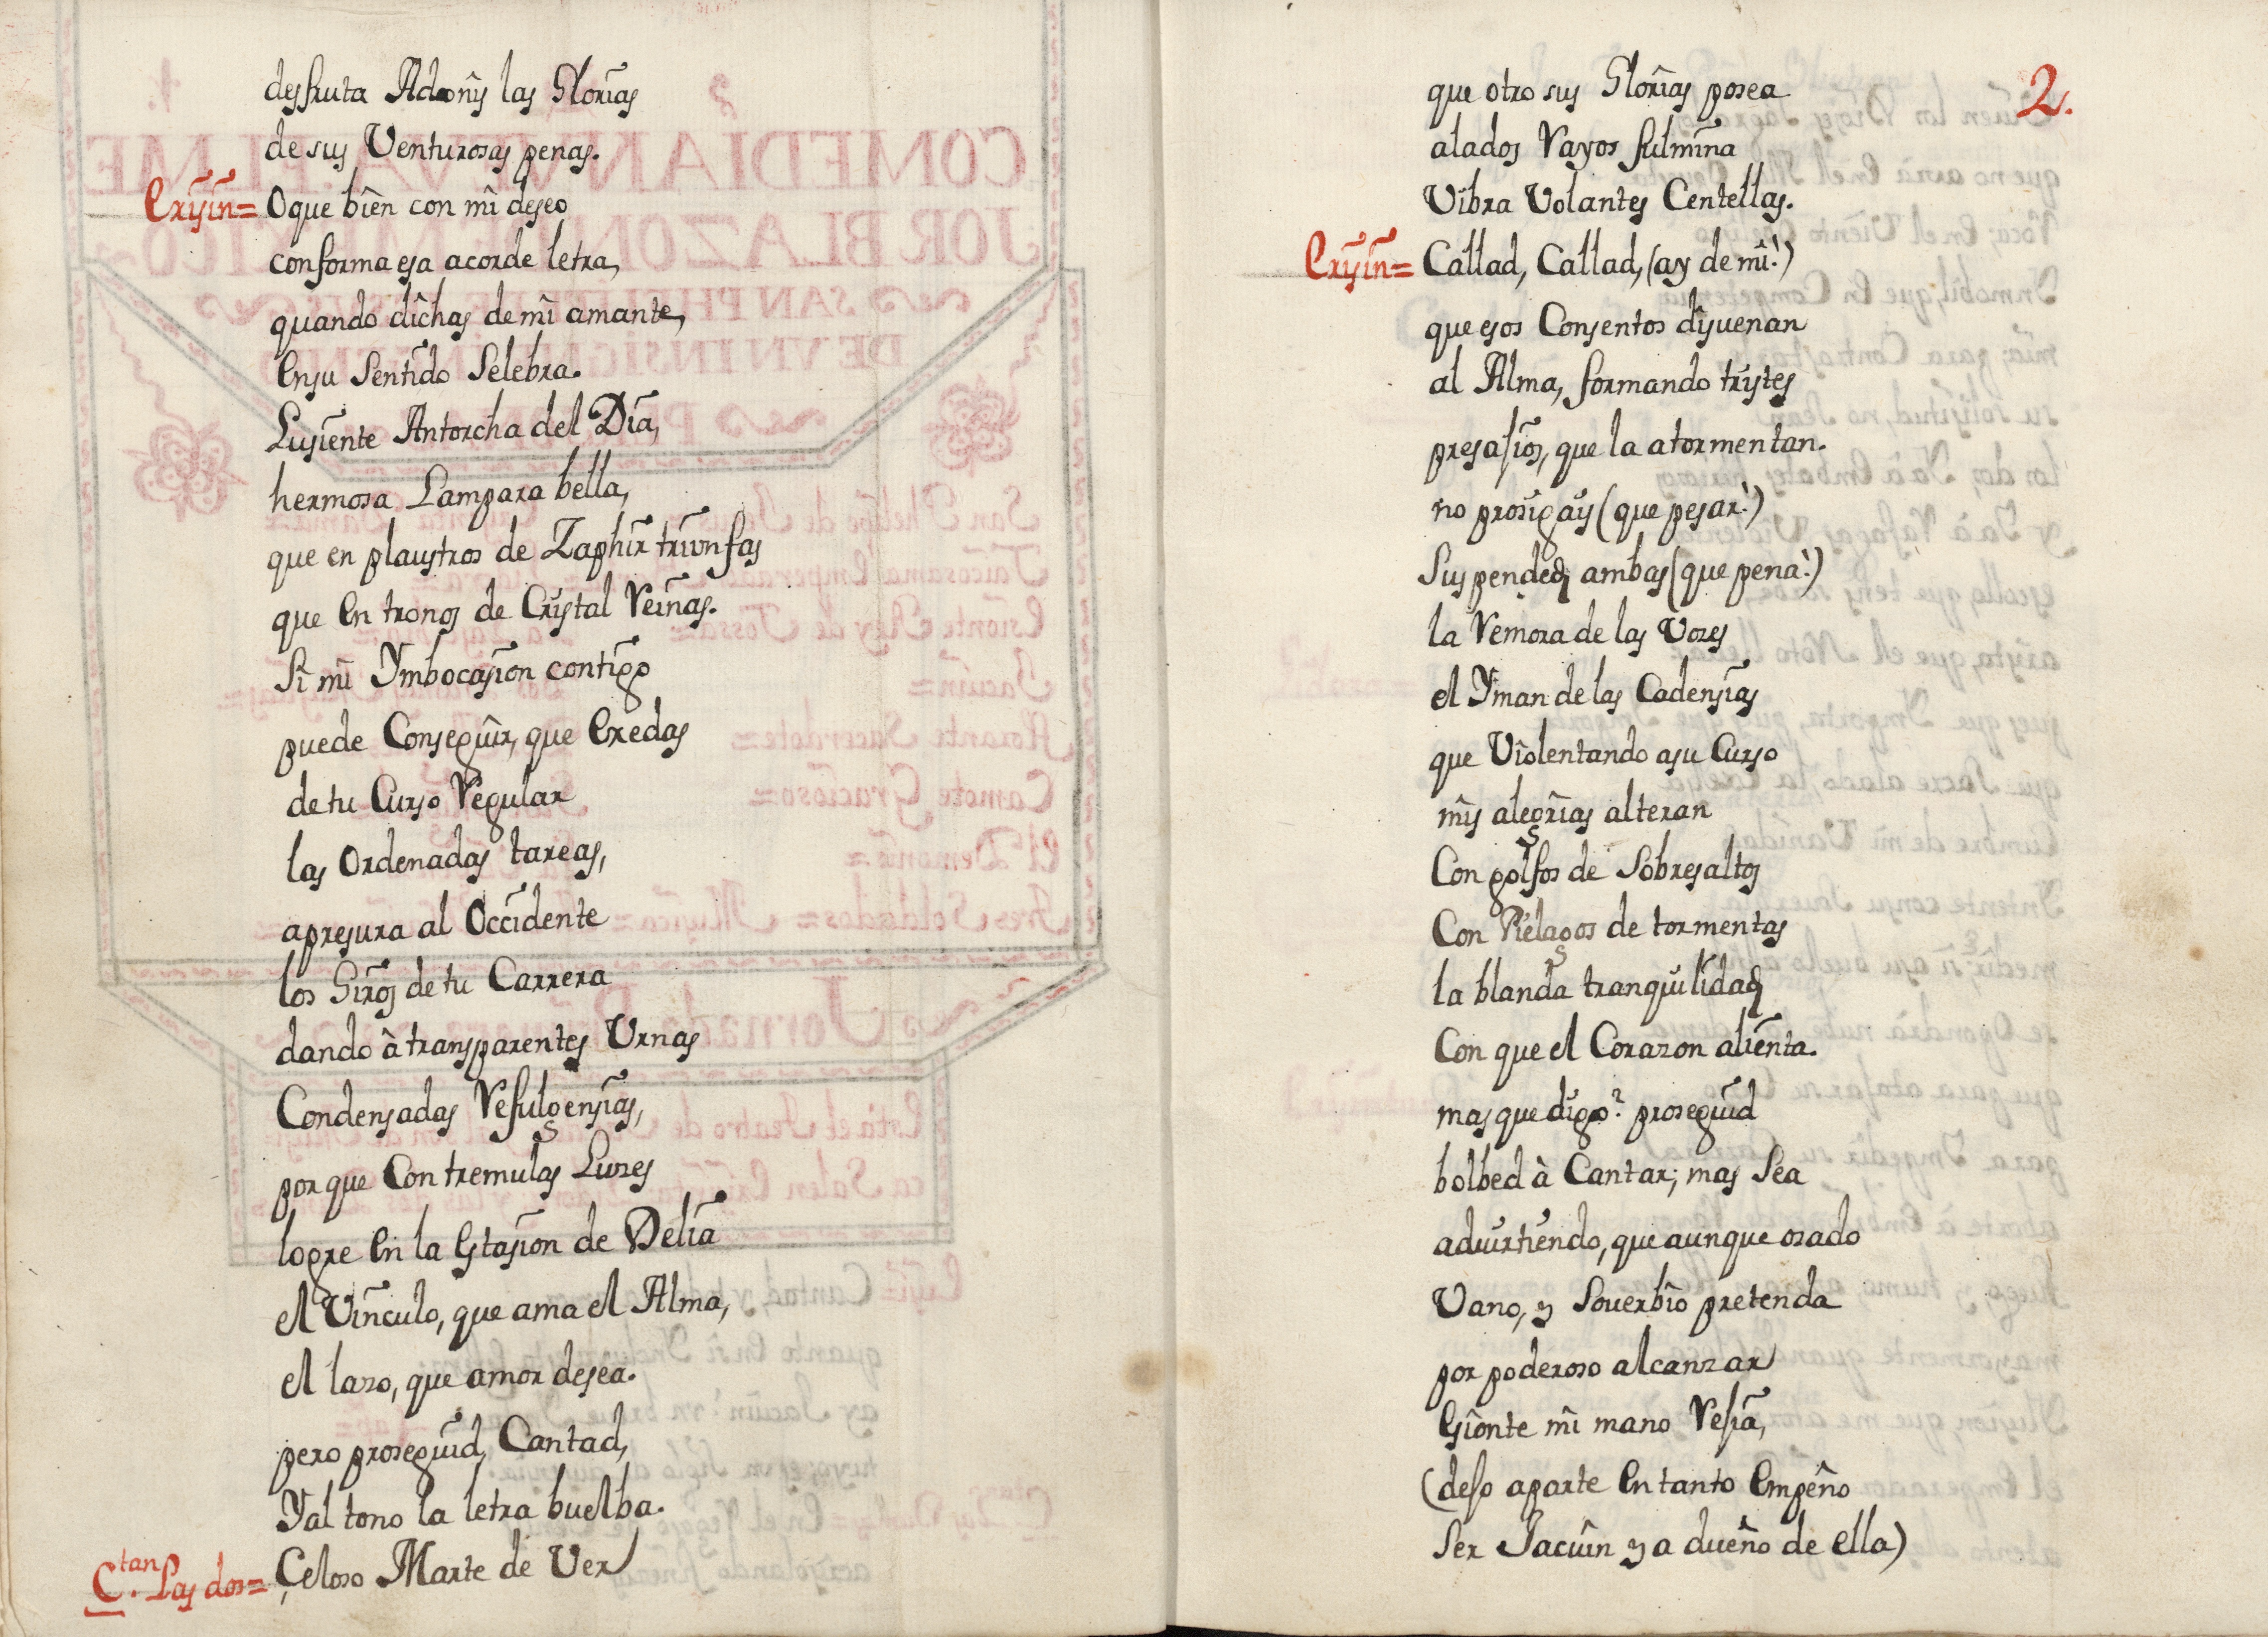 desfruta Adonis las Glorias
de sus Venturosas penas.
Crisin= O que bien con mi deseo
conforma esa acorde letra,
quando dichas de mi amante,
Ensu Sentido Selebra.
Lusiente Antorcha del Dia,
hermosa Lampara bella,
que en plaustros de Zaphir triunfas
que En tronos de Cristal Reinas.
Si mi Ymbocasion contigo
puede Conseguir, que Exedas
de tu Curso Regular
las Ordenadas tareas,
apresura al Occidente
los Giros de tu Carrera
dando à transparentes Urnas
Condensadas Refulgensias,
porque Con tremulas Luzes
logre En la Estasion de Delia
el Vinculo, que ama el Alma,
el lazo, que amor desea.
pero proseguid, Cantad,
Y al tono la letra buelba.
C.tan Las dos= Çeloso Marte de Ver
2.
que otro sus Glorias posea
alados Rayos fulmina
Vibra Volantes Centellas.
Crisin= Callad, Callad, (ay de mi!)
que esos Consentos disuenan
al Alma, formando tristes
presasios, que la atormentan.
no prosigais (que pesar!)
Suspended ambas (que pena!)
la Remora de las Vozes
el Yman de las Cadensias
que Violentando asu Curso
mis alegrias alteran
Con golfos de Sobresaltos
Con Pielagos de tormentas
la blanda tranquilidad
Con que el Corazon alienta.
mas que digo? proseguid
bolbed à Cantar; mas Sea
aduirtiendo, que aunque osado
Vano, y Souerbio pretenda
por poderoso alcanzar
Gsionte mi mano Resia,
(deso aparte En tanto Empeño
Ser Jacuin ya dueño de ella)